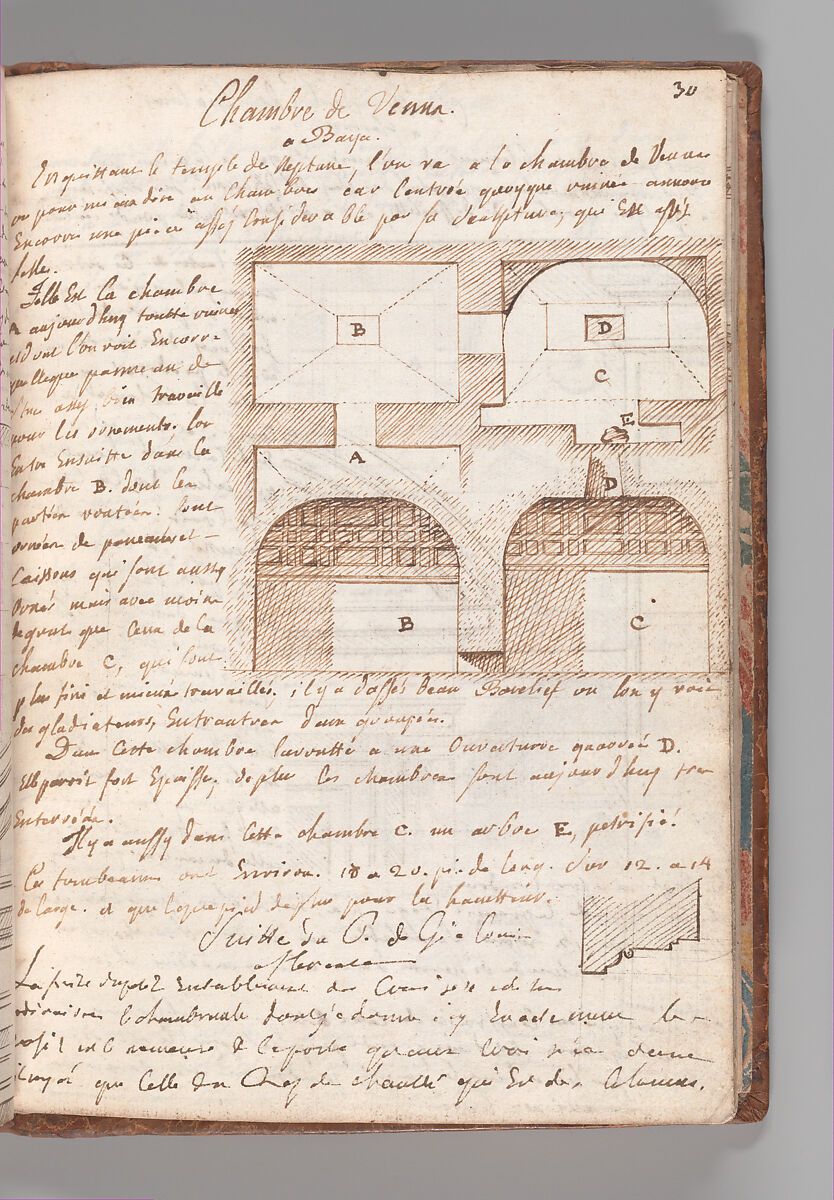 30
Chambre de Venus.
a Baya.
En quittant le temple de Neptune, l'on va a la chambre de Venus
ou pour mieux dire au Chambres car l'entrée quoyque ruinée annonce
Encorre une piece assés Considerable par sa Sculpture, qui Est assés
belle.
Telle Est la chambre
A aujourd'huy toutte ruinée
et dont l'on voit Encorre
quelleque panneau de
Stuc assés bien travaillé
pour les ornements. l'on
Entre Ensuitte dans la
chambre B. dont les
parties voutées. Sont
ornées de panneaus et
Caissons qui sont aussy
Ornés mais avec moins
de gout que Ceux de la
chambre C, qui sont
plus fins et mieux travaillés, il y a d'assés beau Barelief ou l'on y voit
des gladiateurs, Entrautres d'eux groupés.
Dans Cette chambre la voutte a une Ouverture quarrée D.
Elle paroit fort Epaisse, de plus Ces chambres sont aujourd'huy tres
Enterrées.
Il y a aussy dans Cette chambre C. un arbre E, petrifié.
Ces tombeaux ont Environ. 18 a 20. pi. de long. Sur 12. a 14
de large. et quelque pied de plus pour la hautteur.
Suitte du P. de
a florence
La frize du
Entablement des
l'chambranle dont je donne icy Exactement le
profil
la porte
que Celle du
qui Est des Colonnes.
B
D
C
E
A
D
B
C